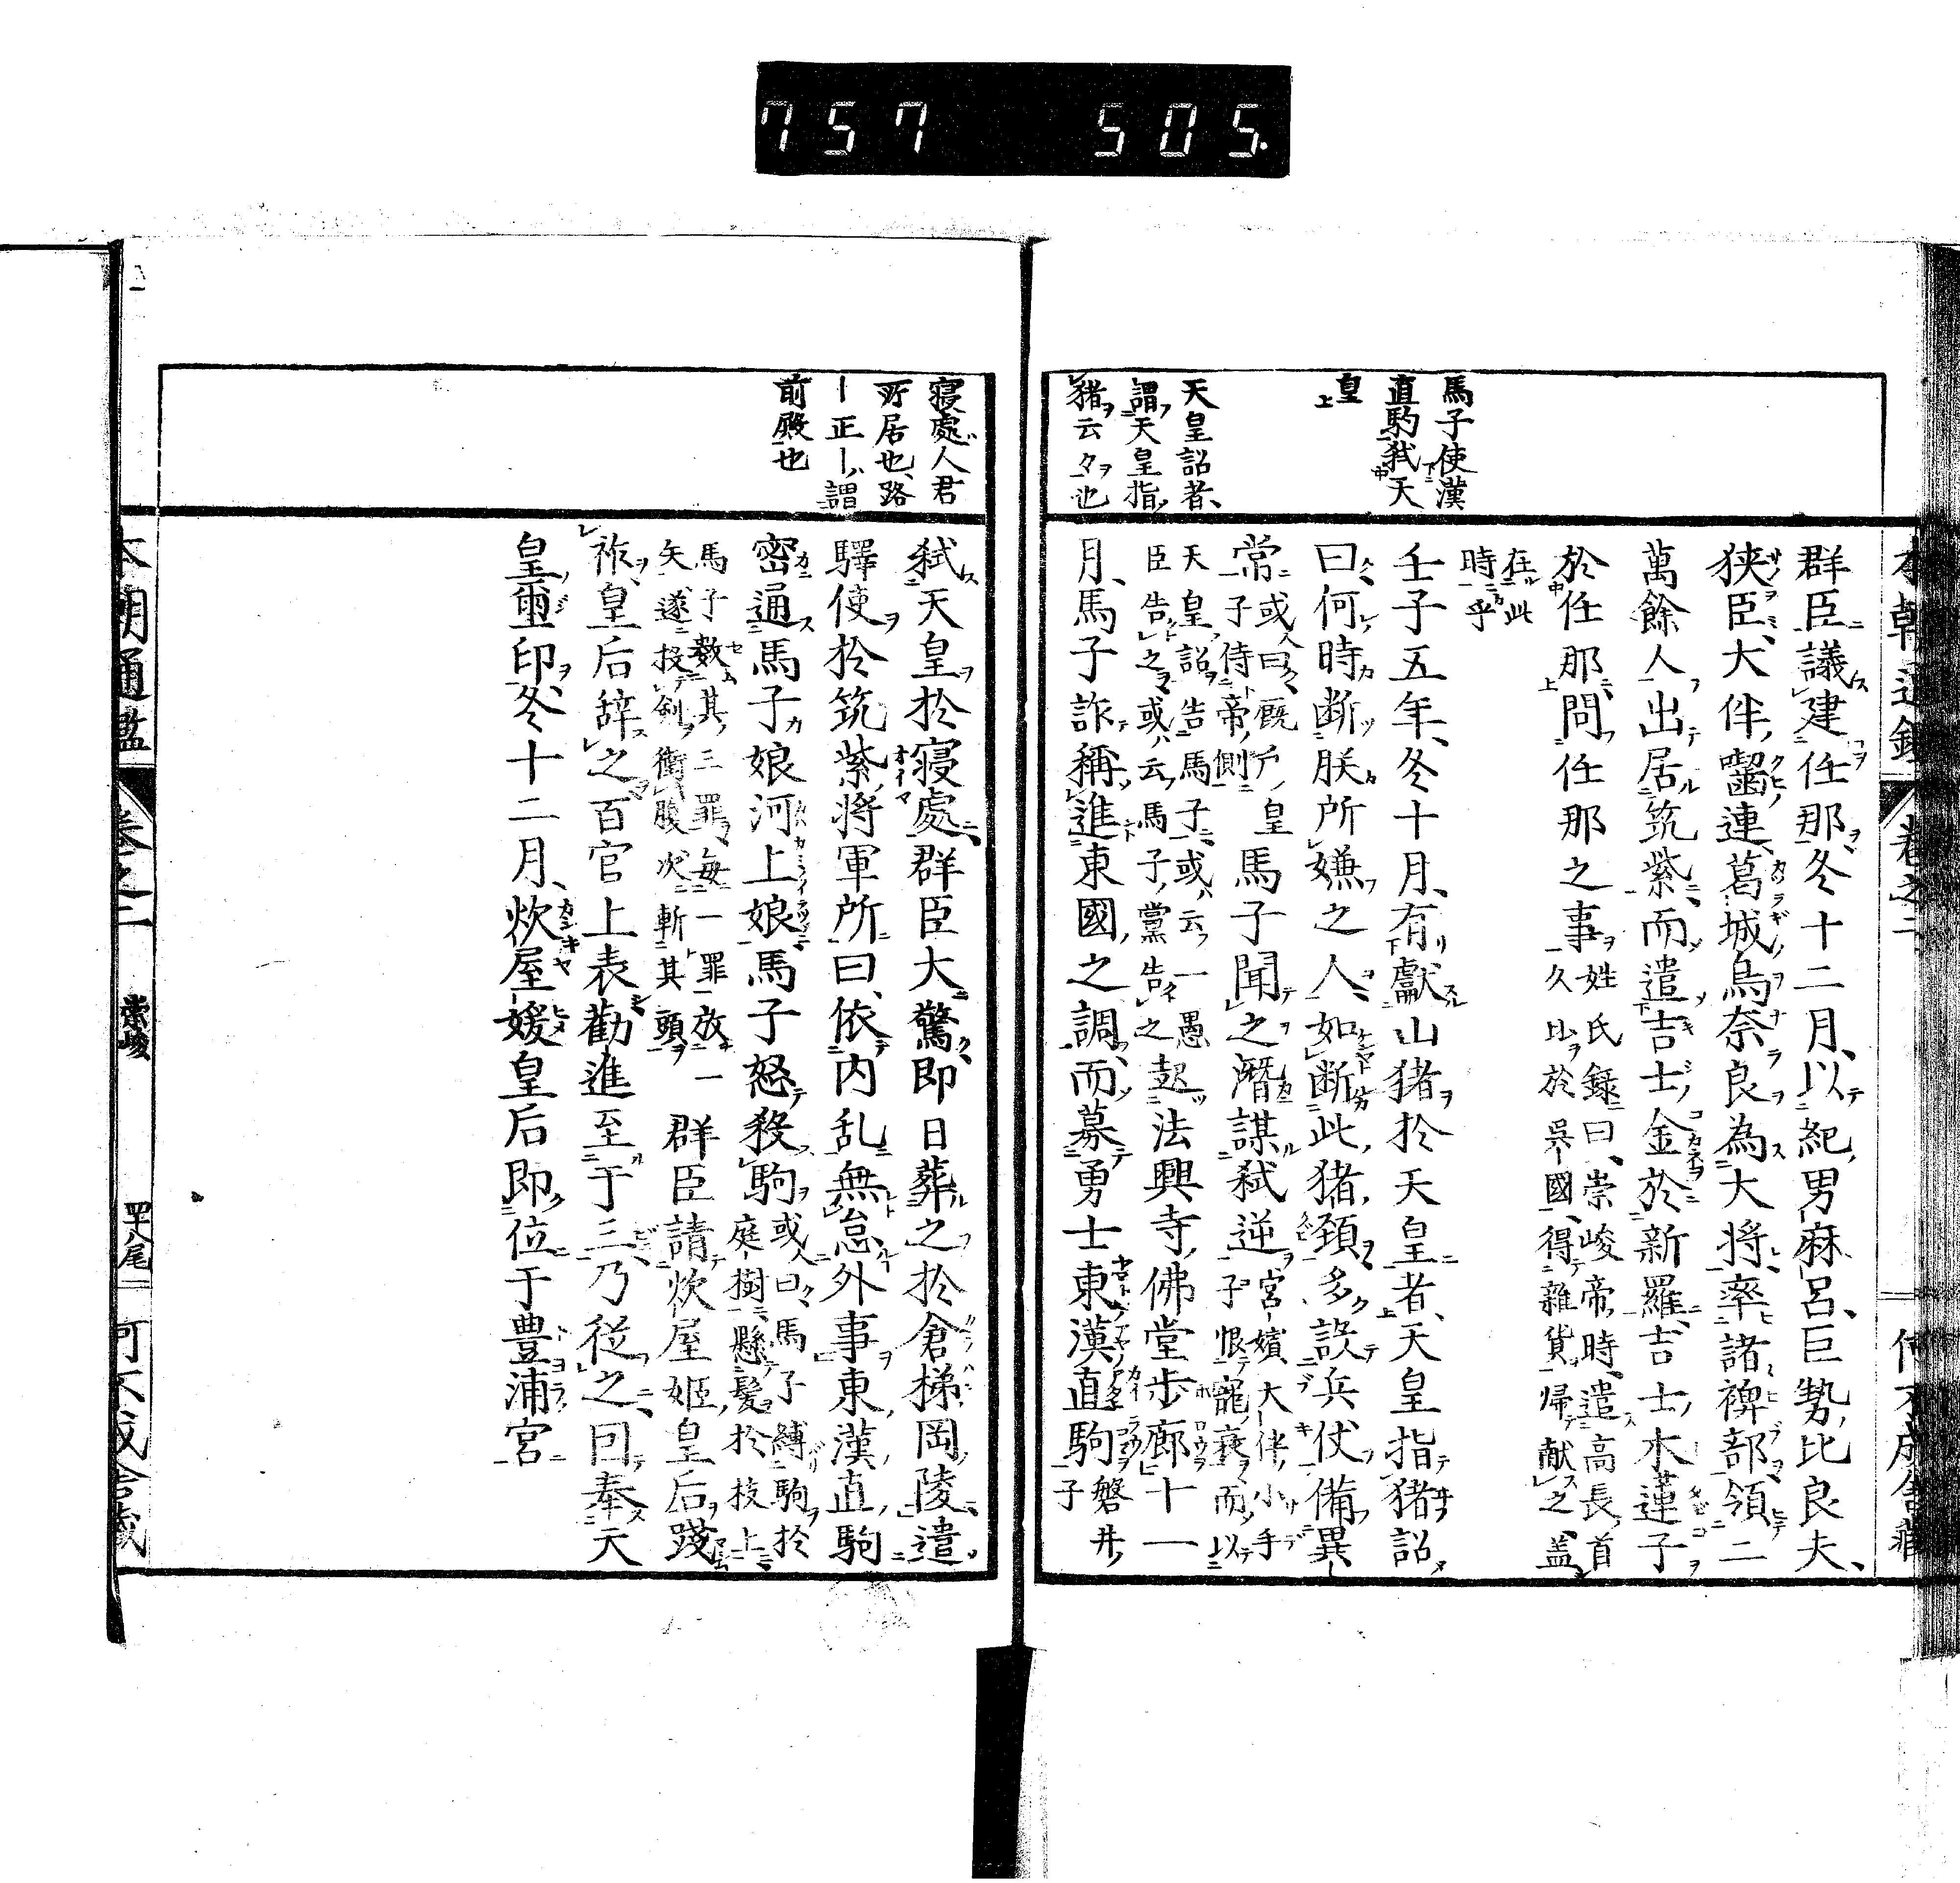 757 505.
馬子使漢
直駒弒天
皇
天皇詔者、
謂天皇指
猪云々也
群臣議建任那、冬十二月、以紀男麻呂、巨勢比良夫、
狹臣、大伴囓連、葛城烏奈良為大將、率諸裨部領二
萬餘人出居筑紫、而遣吉士金於新羅、吉士木蓮子
於任那、問任那之事
姓氏録曰、崇峻帝時、遣高長首
久比於吳國、得雜貨歸献之、盖
在此
時乎
壬子五年、冬十月、有獻山猪於天皇者、天皇指猪詔
曰、何時断朕所嫌之人、如断此猪頚、多設兵仗備異
常
或人曰、厩戶皇
子侍帝側
馬子聞之潛謀弒逆
宮嬪大伴小手
子恨寵衰而以
天皇詔告馬子、或云、一愚
臣告之、或云、馬子黨告之
起法興寺佛堂步廊、十一
月、馬子詐稱進東國之調、而募勇士東漢直駒
磐井
子
寢處、人君
所居也、路
｜正｜、謂
前殿也
弒天皇於寢處、群臣大驚、即日葬之於倉梯岡陵、遣
驛使於筑紫將軍所曰、依内乱無怠外事、東漢直駒
密通馬子娘河上娘、馬子怒殺駒
或人曰、馬子縛駒於
庭樹、懸髪於枝上
馬子數其三罪、每一罪放一
矢、遂投剣衝腹、次斬其頭
群臣請炊屋姬皇后踐
祚、皇后辞之、百官上表勸進至于三、乃從之、因奉天
皇璽印、冬十二月、炊屋媛皇后即位于豊浦宮
本朝通鑑 卷之二 崇峻 四十八尾